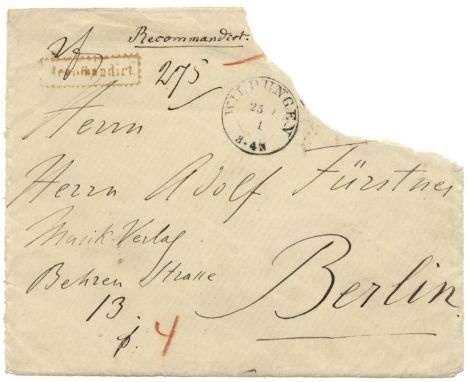 Recommandirt.
Recommandirt.
275
WILDUNGEN
25
1
3-4N
Herrn
Herrn Adolf Fürstner
Musik-Verlag
Behren Strasse
Berlin.
13.
fr. 4